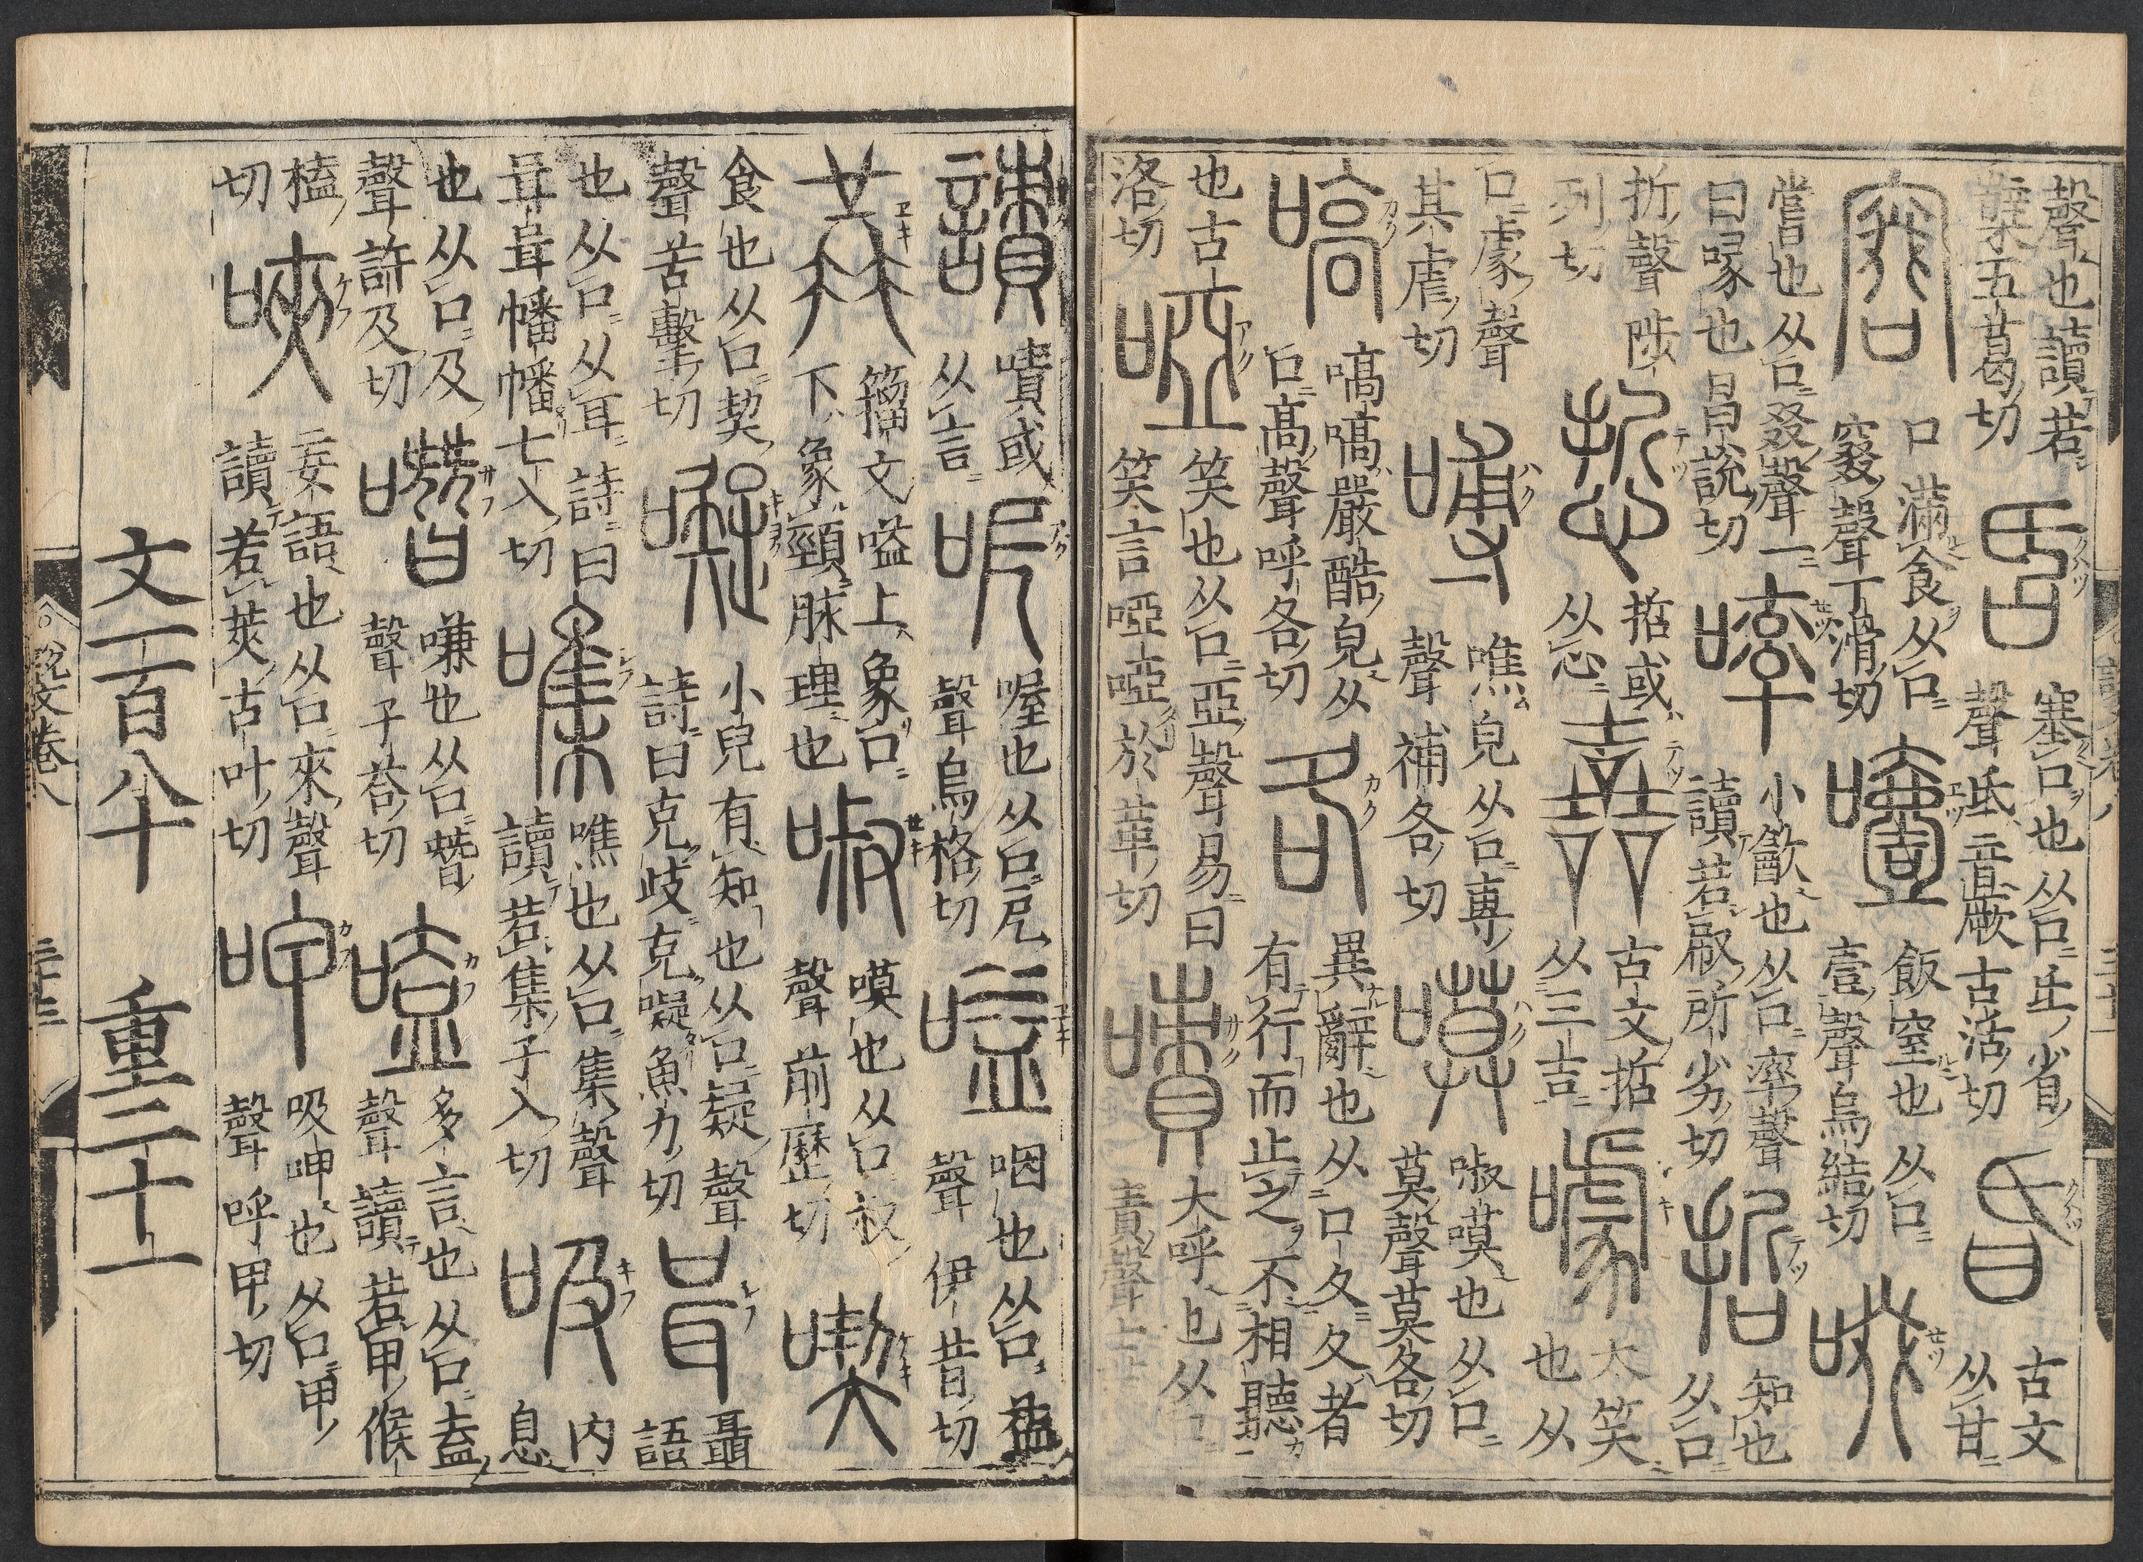 聲也讀若櫱五葛切 𠯑 塞口也从口氐省聲 氐音厥 古活切 古文从甘
口滿食从口窡聲丁滑切 噎 飯窒也从口壹聲烏結切 啜
嘗也从口叕聲一曰喙也昌說切 小㱃也从口率聲讀若㕞所劣切 哲 知也从口
折聲陟列切 悊 哲或从心 嚞 古文哲从三吉 噱 大笑也从
口豦聲其虐切 噍皃从口尃聲補各切 嗼 㖡嗼也从口莫聲莫各切
嗃 嗃嗃嚴酷皃从口高聲呼各切 各 異辭也从口夂夂者有行而止之不相聽
也古洛切 啞 笑也从口亞聲易曰笑言啞啞於革切 嘖 大呼也从口責聲士革
謮 嘖或从言 呝 喔也从口戹聲烏格切 嗌 咽也从口益聲伊昔切
籒文嗌上象口下象頸脉理也 㖡 嗼也从口叔聲前歷切 喫
食也从口契聲苦擊切 小兒有知也从口疑聲詩曰克岐克噮魚力切 咠 聶語
也从口从耳詩曰咠咠幡幡七入切 噍也从口集聲讀若集子入切 吸 內息
也从口及聲許及切 噆 嗛也从口朁聲子荅切 嗑 多言也从口盍聲讀若甲候
榼切 唊 妄語也从口夾聲讀若莢古叶切 呷 吸呷也从口甲聲呼甲切
文一百八十 重二十一
說文卷八